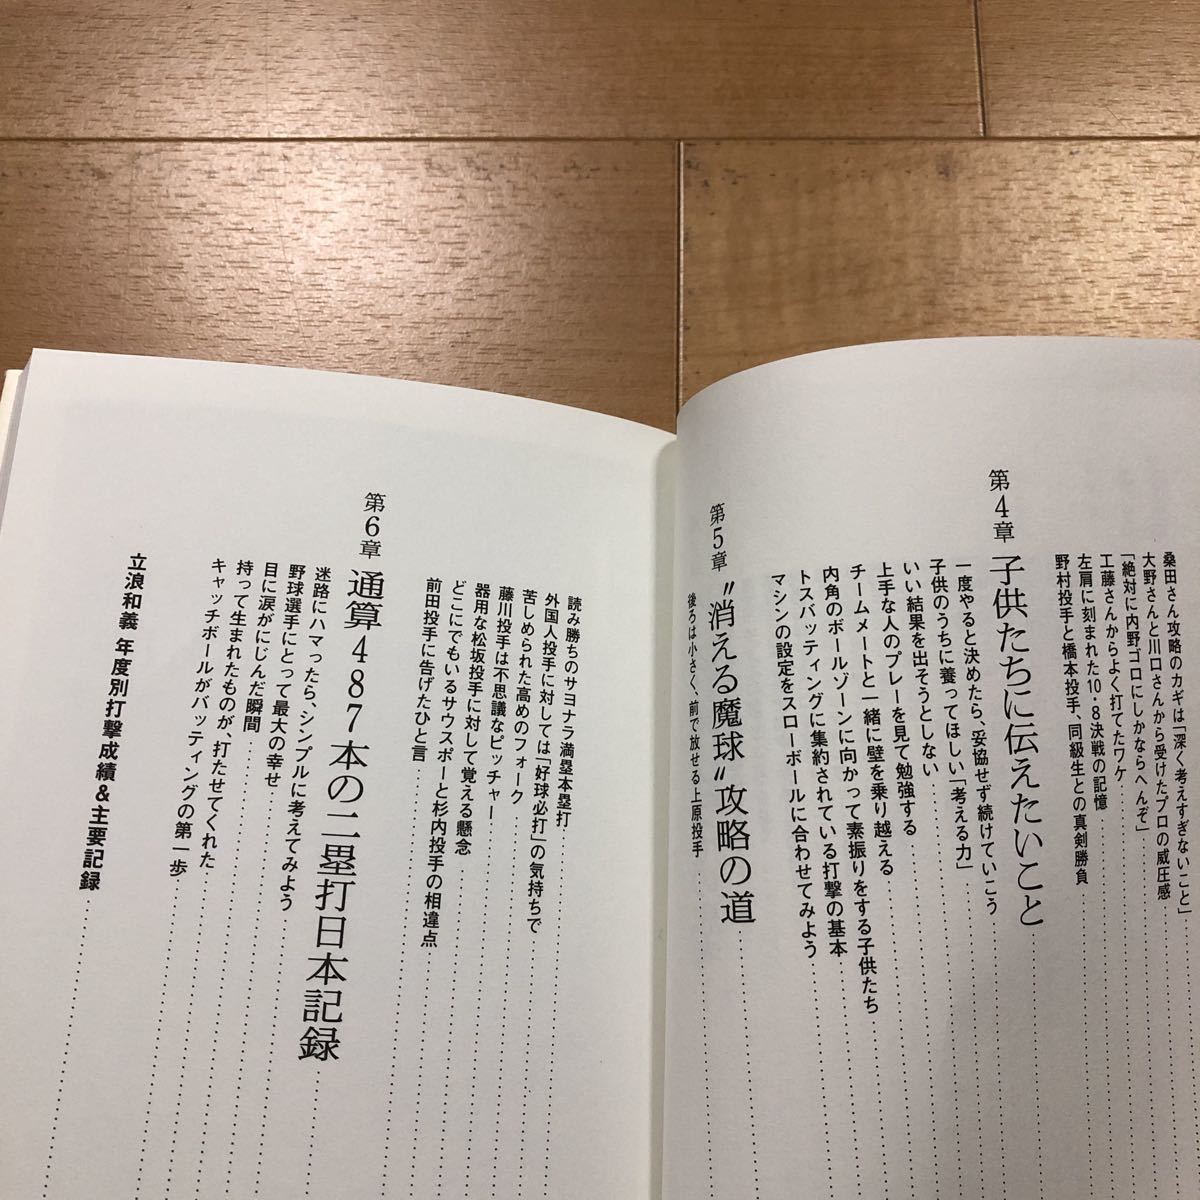 桑田さん攻略のカギは「深く考えすぎないこと」
大野さんと川口さんから受けたプロの威圧感
「絶対に内野ゴロにしかならへんぞ」
工藤さんからよく打てたワケ
左肩に刻まれた10・8決戦の記憶
野村投手と橋本投手、同級生との真剣勝負
第4章 子供たちに伝えたいこと
一度やると決めたら、妥協せず続けていこう
子供のうちに養ってほしい「考える力」
いい結果を出そうとしない
上手な人のプレーを見て勉強する
チームメートと一緒に壁を乗り越える
内角のボールゾーンに向かって素振りをする子供たち
トスバッティングに集約されている打撃の基本
マシンの設定をスローボールに合わせてみよう
第5章 〝消える魔球〟攻略の道
後ろは小さく、前で放せる上原投手
読み勝ちのサヨナラ満塁本塁打
外国人投手に対しては「好球必打」の気持ちで
苦しめられた高めのフォーク
藤川投手は不思議なピッチャー
器用な松坂投手に対して覚える懸念
どこにでもいるサウスポーと杉内投手の相違点
前田投手に告げたひと言
第6章 通算487本の二塁打日本記録
迷路にハマったら、シンプルに考えてみよう
野球選手にとって最大の幸せ
目に涙がにじんだ瞬間
持って生まれたものが、打たせてくれた
キャッチボールがバッティングの第一歩
立浪和義 年度別打撃成績&主要記録